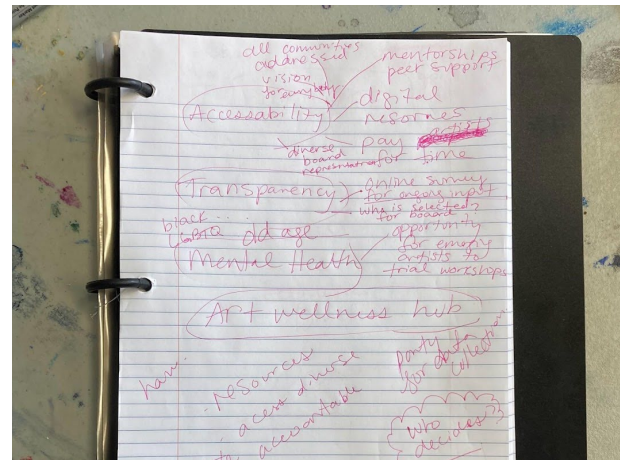 all communities
addressed
vision
for everybody
mentorships
peer support
Accessability
digital
resources
pay artists
for time
diverse
board
representation
Transparency
online survey
for ongoing input
who is selected?
for board
black
LGBTQ
old age
opportunity
for emerg
artists to
trial workshops
Mental Health
Art wellness hub
resources
acess diverse
accountable
party
for data
collection
who
decides?